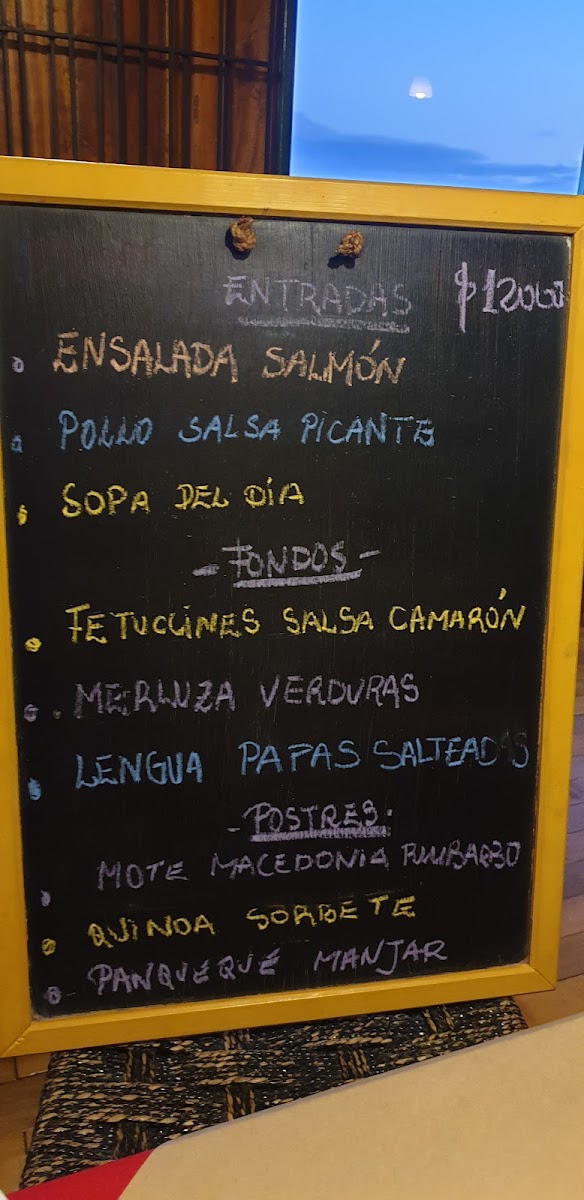 ENTRADAS $12000
ENSALADA SALMÓN
POLLO SALSA PICANTE
SOPA DEL DÍA
- FONDOS -
FETUCCINES SALSA CAMARÓN
MERLUZA VERDURAS
LENGUA PAPAS SALTEADAS
- POSTRES.
MOTE MACEDONIA
QUINOA SORBETE
PANQUEQUE MANJAR